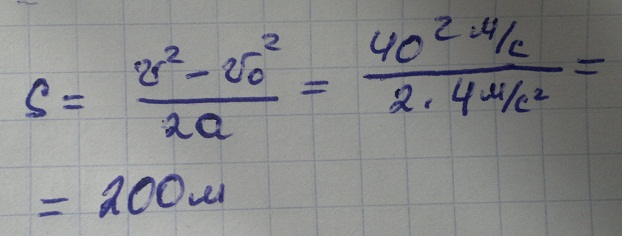 S = (v² - v₀²) / 2a = 40² м/с / 2 · 4 м/с² =
= 200 м